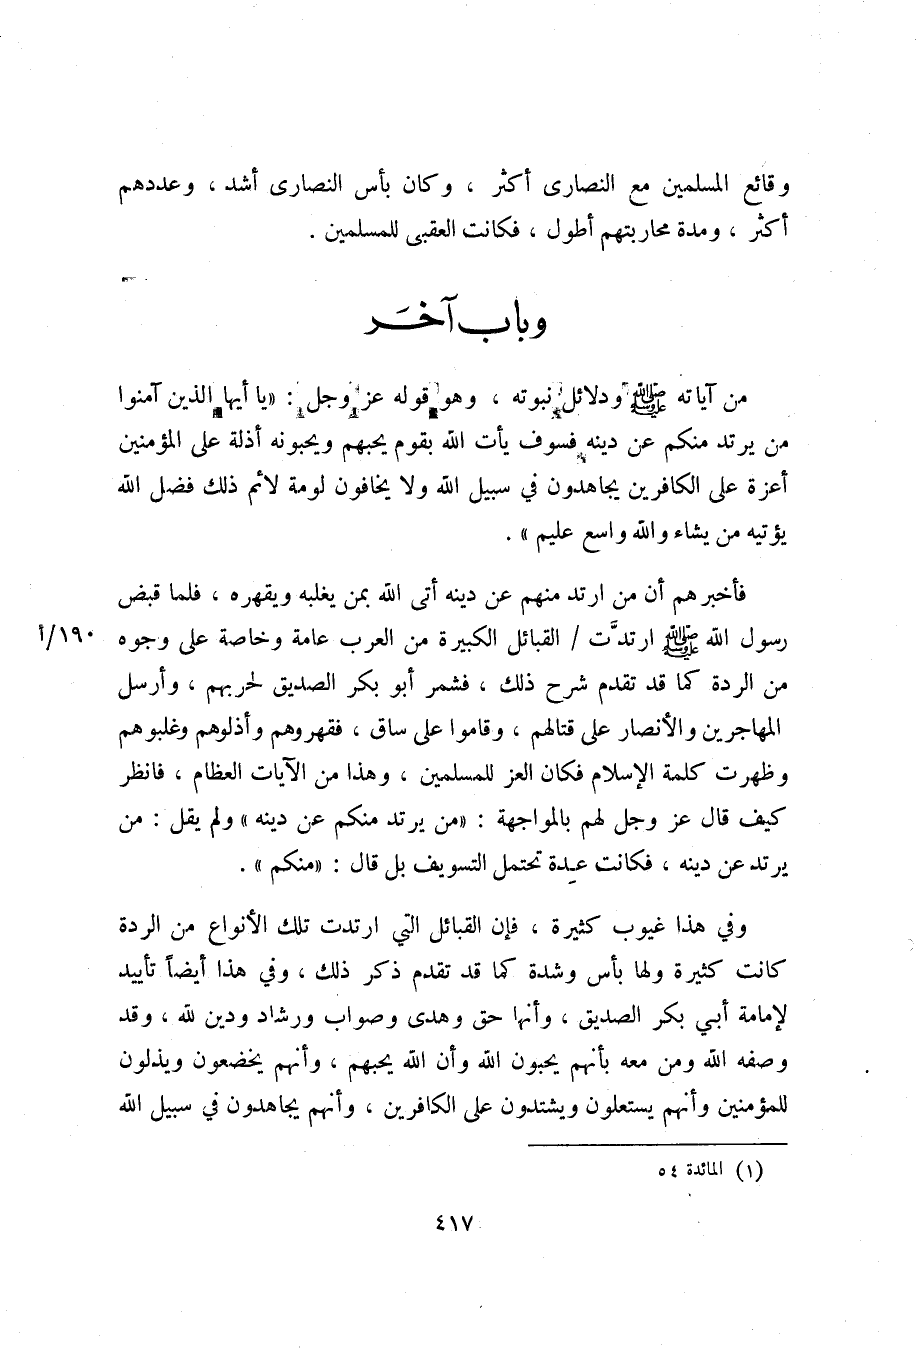 وقائع المسلمين مع النصارى أكثر ، وكان بأس النصارى أشد ، وعددهم
أكثر ، ومدة محاربتهم أطول ، فكانت العقبى للمسلمين .
وباب آخَر
من آياته ﷺ ودلائل نبوته ، وهو قوله عز وجل : «يا أيها الذين آمنوا
من يرتد منكم عن دينه فسوف يأت الله بقوم يحبهم ويحبونه أذلة على المؤمنين
أعزة على الكافرين يجاهدون في سبيل الله ولا يخافون لومة لائم ذلك فضل الله
يؤتيه من يشاء والله واسع عليم » .
فأخبرهم أن من ارتد منهم عن دينه أتى الله بمن يغلبه ويقهره ، فلما قبض
رسول الله ﷺ ارتدَّت / القبائل الكبيرة من العرب عامة وخاصة على وجوه
١٩٠/أ
من الردة كما قد تقدم شرح ذلك ، فشمر أبو بكر الصديق لحربهم ، وأرسل
المهاجرين والأنصار على قتالهم ، وقاموا على ساق ، فقهروهم وأذلوهم وغلبوهم
وظهرت كلمة الإسلام فكان العز للمسلمين ، وهذا من الآيات العظام ، فانظر
كيف قال عز وجل لهم بالمواجهة : «من يرتد منكم عن دينه» ولم يقل : من
يرتد عن دينه ، فكانت عِدة تحتمل التسويف بل قال : «منكم» .
وفي هذا غيوب كثيرة ، فإن القبائل التي ارتدت تلك الأنواع من الردة
كانت كثيرة ولها بأس وشدة كما قد تقدم ذكر ذلك ، وفي هذا أيضاً تأييد
لإمامة أبي بكر الصديق ، وأنها حق وهدى وصواب ورشاد ودين لله ، وقد
وصفه الله ومن معه بأنهم يحبون الله وأن الله يحبهم ، وأنهم يخضعون ويذلون
للمؤمنين وأنهم يستعلون ويشتدون على الكافرين ، وأنهم يجاهدون في سبيل الله
(١) المائدة ٥٤
٤١٧